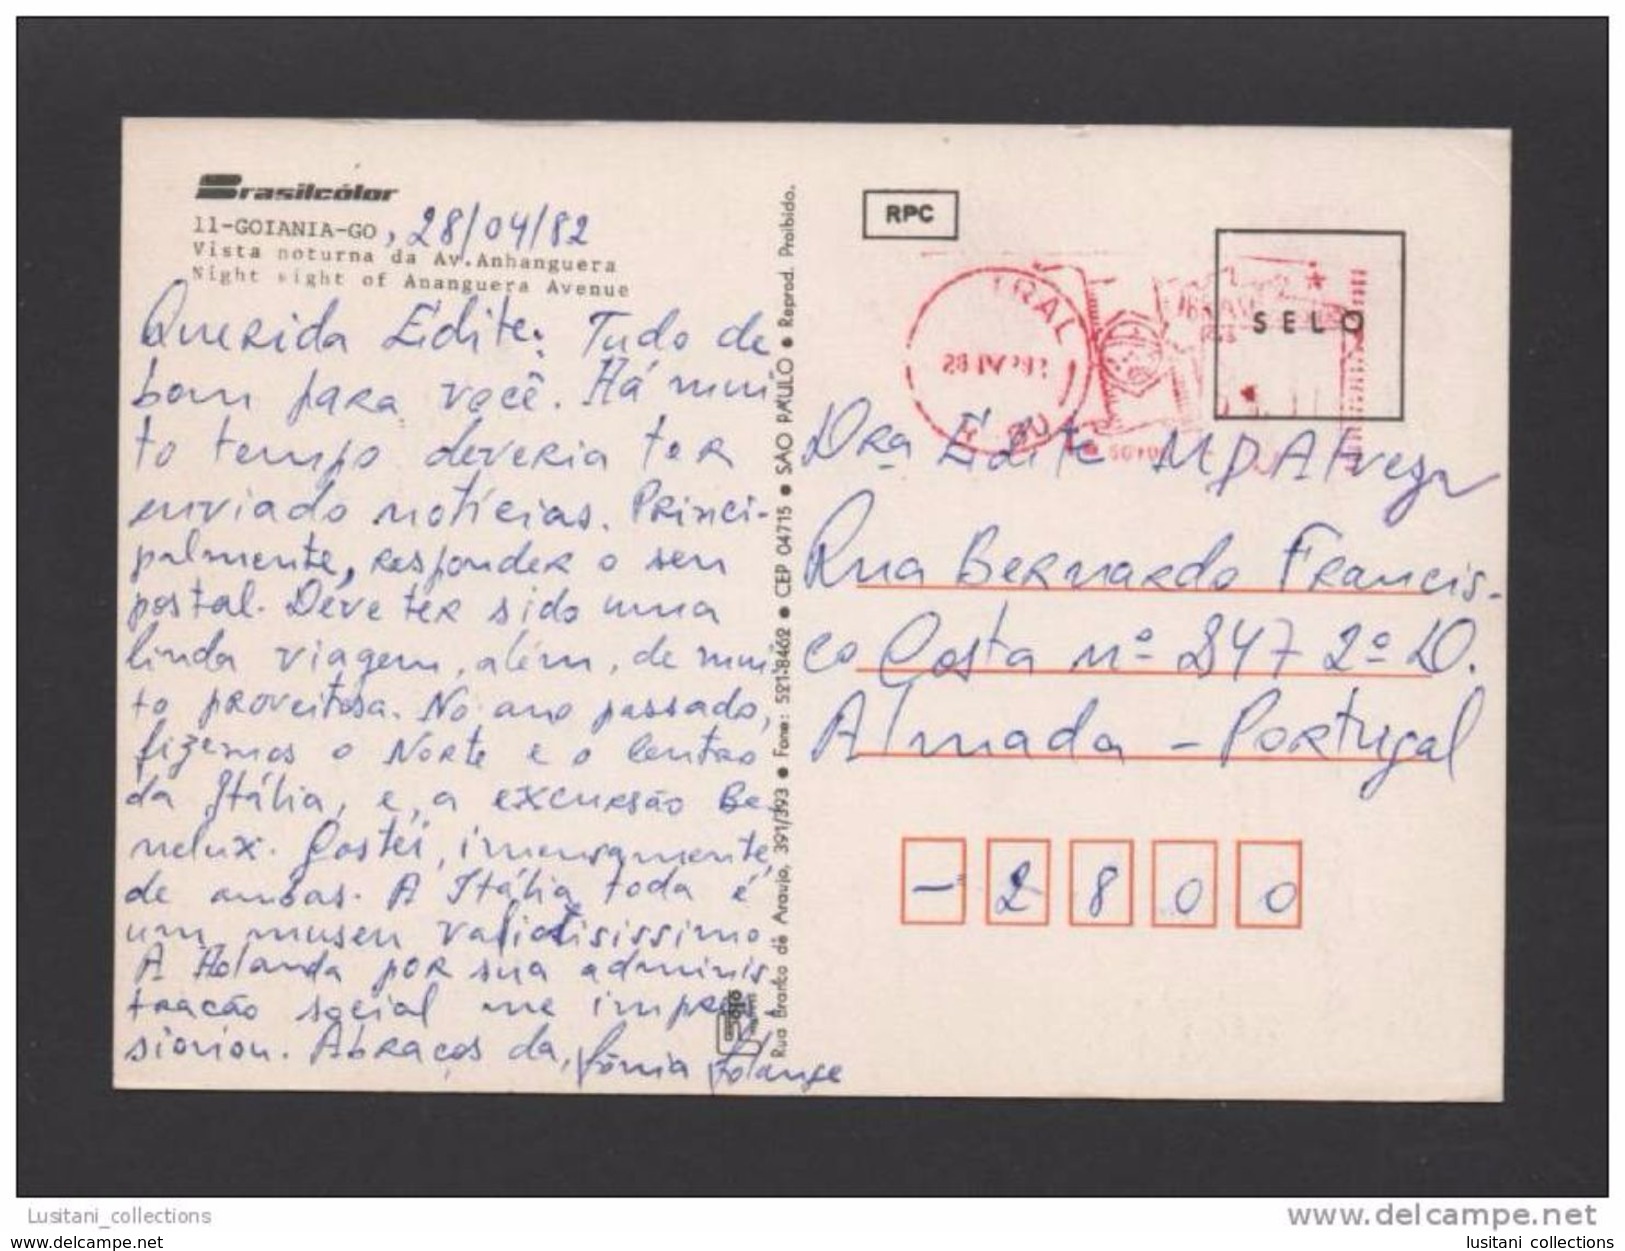 Brasilcólor
11-GOIANIA-GO, 28/04/82
Vista noturna da Av.Anhanguera
Night sight of Ananguera Avenue
Querida Édite: Tudo de
bom para você. Há mui
to tempo deveria ter
enviado notícias. Princi-
palmente, responder o seu
postal. Deve ter sido uma
linda viagem, além, de mui
to proveitosa. No ano passado,
fizemos o Norte e o Centro
da Itália, e, a excursão Be-
nelux. Gostei, imensamente,
de ambas. A Itália toda é
um museu
A Holanda por sua adminis
tração social me impres
sionou. Abraços da, Sônia Solange
Rua Branco de Araujo, 391/393 ● Fone: 521-8462 ● CEP 04715 ● SÃO PAULO ● Reprod. Proibido.
RPC
SELO
TRAL
Dra Édite
Rua Bernardo Francis-
co Costa nº 247 2º D.
Almada - Portugal
- 2 8 0 0
Lusitani_collections
www.delcampe.net
www.delcampe.com
lusitani collections